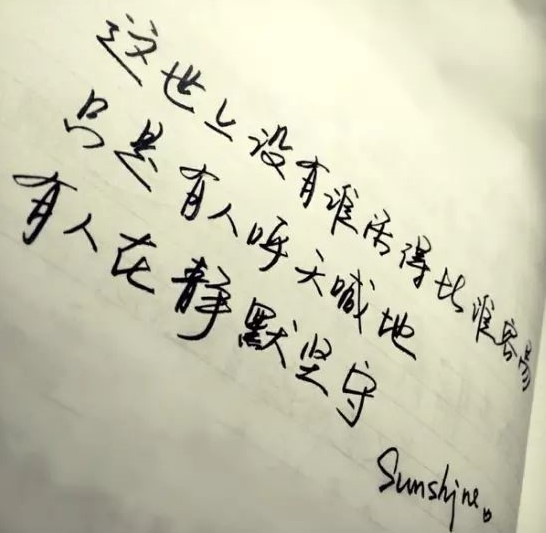 这世上没有谁活得比谁容易
只是有人呼天喊地
有人在静默坚守
Sunshine。